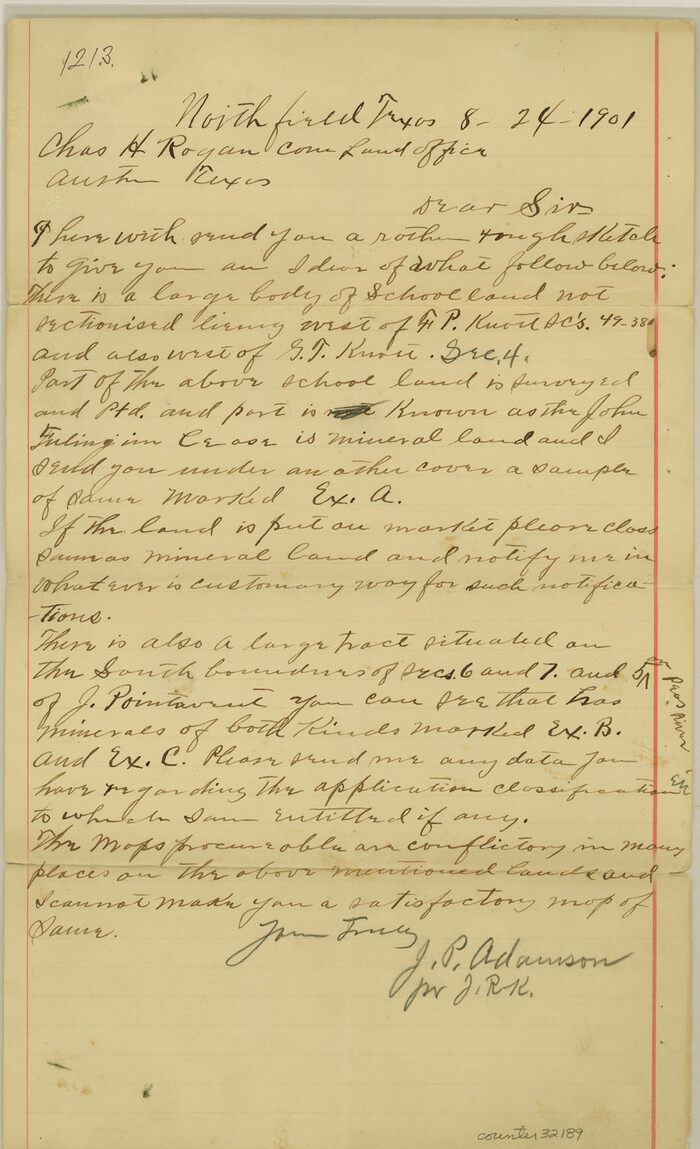 1213.
Northfield Texas 8-24-1901
Chas H Rogan Com Land office
Austin Texas
Dear Sir
I here with send you a rather rough sketch
to give you an Idear of what follow below:
There is a large body of School land not
sectionised lieing west of F. P. Knott Sc's. 49-380
and also west of G. T. Knott. Sec, 4.
Part of the above school land is surveyed
and Ptd. and part is Known as the John
Fulingim Lease is mineral land and I
send you under another cover a sample
of same marked Ex. A.
If the land is put on market please class
same as mineral land and notify me in
whatever is customary way for such notifica-
-tions.
There is also a large tract situated on
the South boundries of Secs. 6 and 7. and 5
of J. Pointavent you can see that has
minerals of both Kinds marked Ex. B.
and Ex. C. Please send me any data you
have regarding the application classification
to which same entittled if any.
The Maps procureable are conflictory in many
places on the above mentioned lands and
I cannot make you a satisfactory map of
Same.
Yours Truly
J. P. Adamson
pr J. R. K.
on Peas River
counter 32189